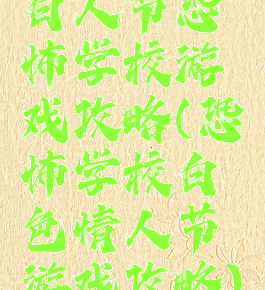 白人节恐
怖学校游
戏攻略(恐
怖学校白
色情人节
游戏攻略)